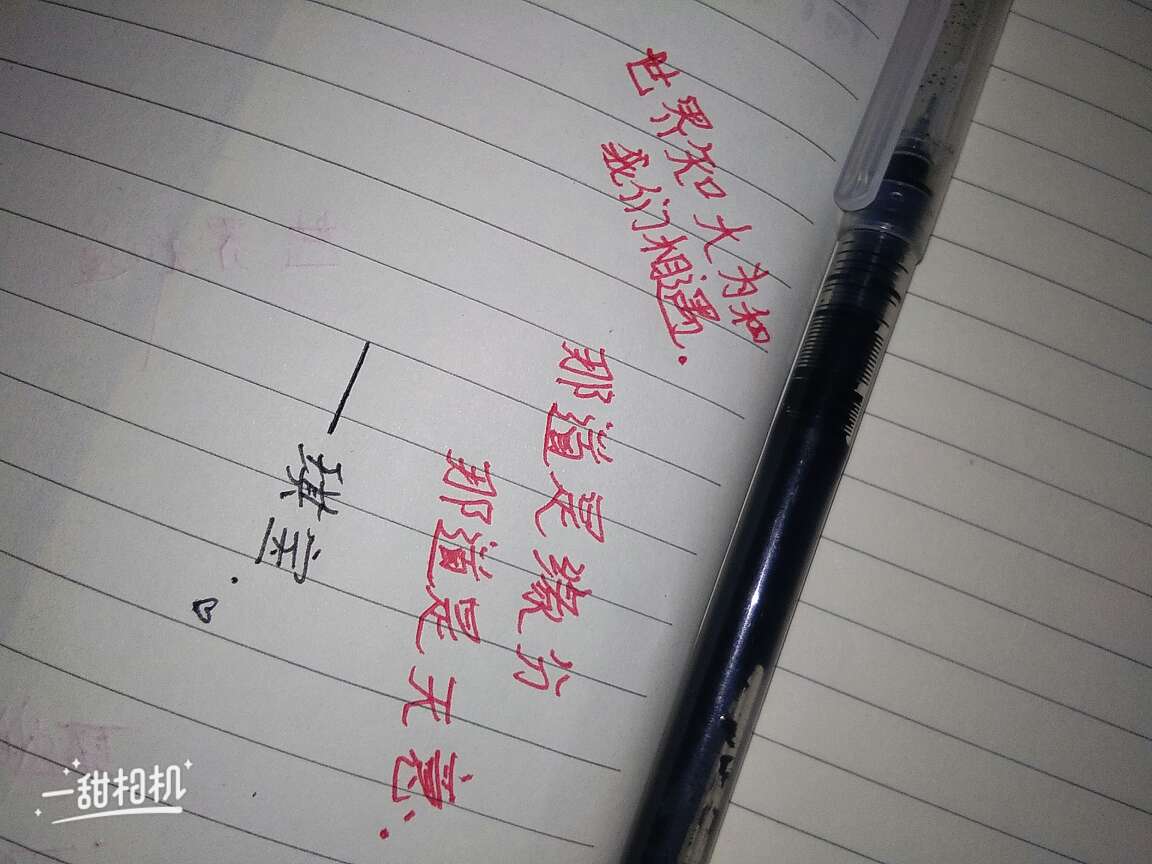 世界知大为和
我们相遇.
那道是缘分
那道是天意.
—宝.♡
一甜相机